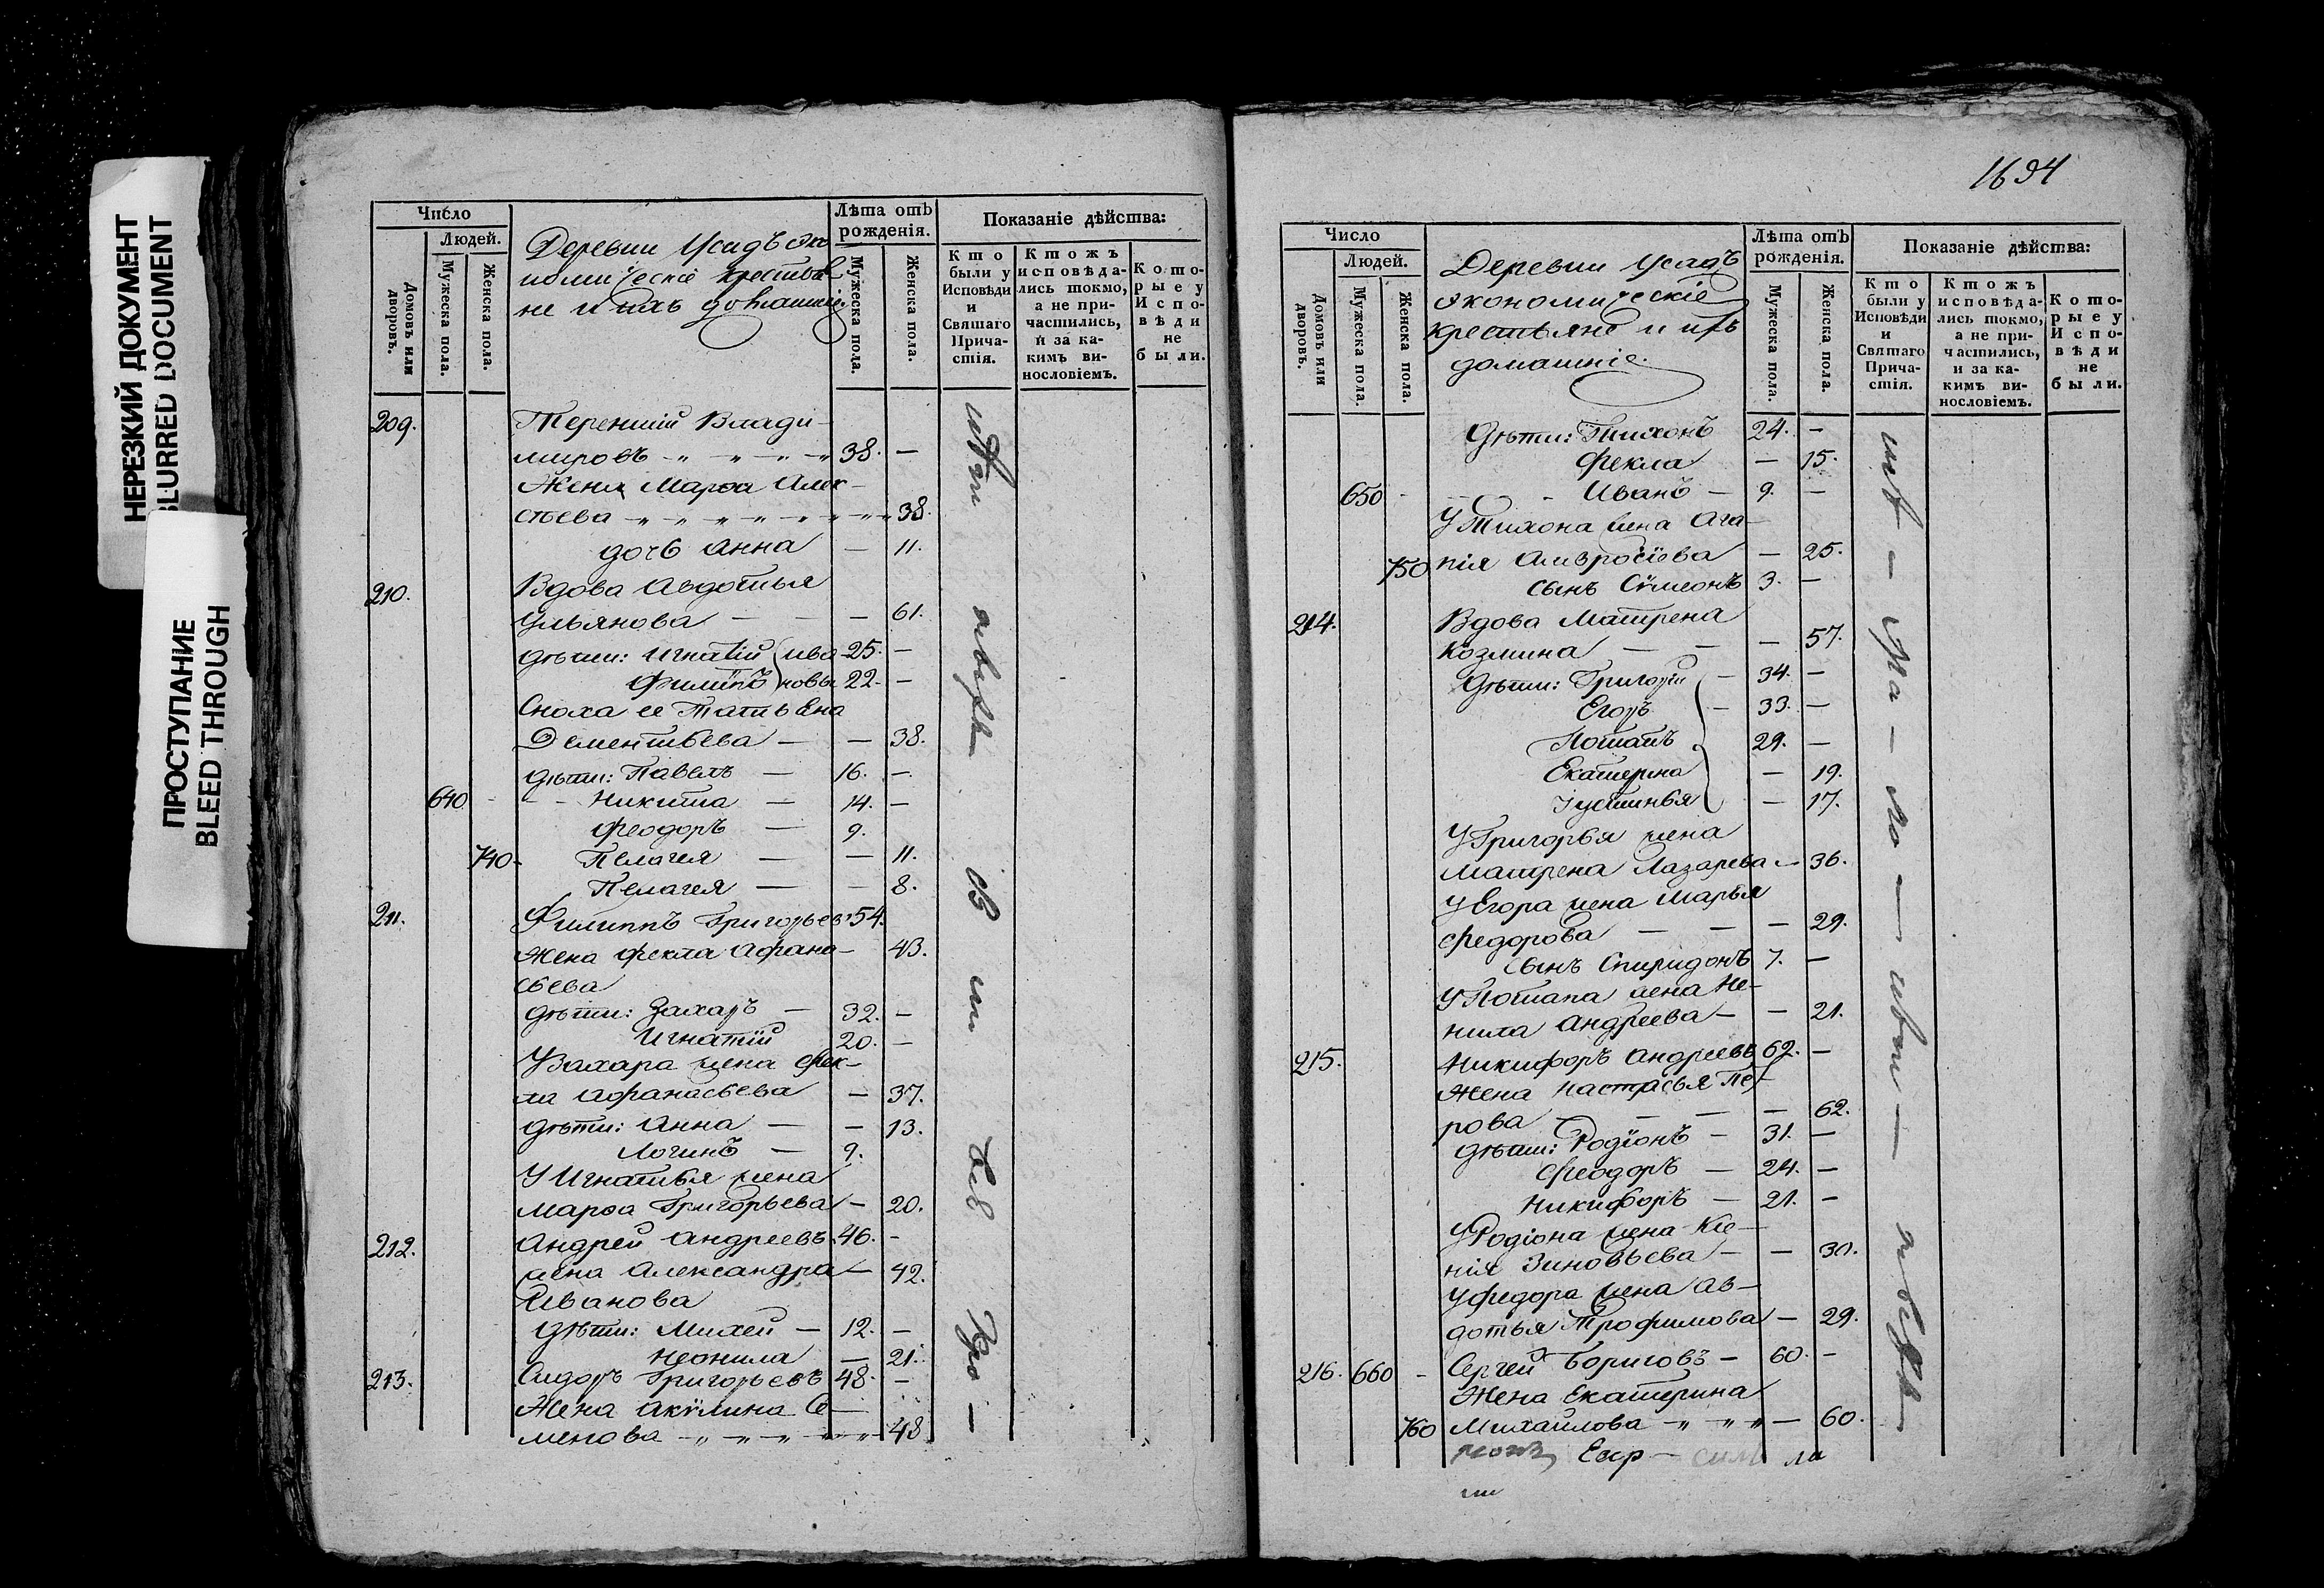 НЕРЕЗКИЙ ДОКУМЕНТ
BLURRED DOCUMENT
ПРОСТУПАНИЕ
BLEED THROUGH
Число
Людей.
Домовъ или дворовъ.
Мужеска пола.
Женска пола.
Деревни Усадъ эко
номическіе крестья
не и ихъ домашніе
Лѣта отъ рожденія.
Мужеска пола.
Женска пола.
Показаніе дѣйства:
Кто были у Исповѣди и Святаго Причастія.
Ктожъ исповѣдались токмо, а не причастились, и за какимъ винословіемъ.
Которые у Исповѣди не были.
209. Терентий Влади-
мировъ 38. —
Жена Марѳа Алек-
сѣева 38.
дочь Анна — 11.
210. Вдова Авдотья
Ульянова — — — 61.
Дѣти: Игнатій ива 25. —
Филипъ новы 22. —
Сноха ее Татьяна
Дементьева — — 38.
дѣти: Павелъ — 16. —
640 Никита — 14. —
Феодоръ — 9.
740 Пелагея — — 11.
Пелагея — — 8.
211. Филиппъ Григорьевъ 54.
Жена Фекла Афана- 43.
сьева
Дѣти: Захаръ — 32. —
Игнатій 20. —
У Захара жена Фек-
ла Афанасьева — 37.
Дѣти: Анна — — 13.
Логинъ — 9.
У Игнатья жена
Марѳа Григорьева — 20.
212. Андрей Андреевъ 46. —
жена Александра — 42.
Иванова
Дѣти: Михей — 12. —
Неонила — 21.
213. Сидоръ Григорьевъ 48. —
Жена Акулина Се-
менова 48
1694
Число
Людей.
Домовъ или дворовъ.
Мужеска пола.
Женска пола.
Деревни Усадъ
экономическіе
крестьяне и ихъ
домашніе.
Лѣта отъ рожденія.
Мужеска пола.
Женска пола.
Показаніе дѣйства:
Кто были у Исповѣди и Святаго Причастія.
Ктожъ исповѣдались токмо, а не причастились, и за какимъ винословіемъ.
Которые у Исповѣди не были.
Дѣти: Тихонъ 24. —
Фекла — 15.
650 Иванъ — 9. —
У Тихона жена Ага-
750 пія Амвросіева — 25.
сынъ Симеонъ 3. —
214. Вдова Матрена
Козмина — — — 57.
Дѣти: Григорій — 34. —
Егоръ — 33. —
Потапъ 29. —
Екатерина — 19.
Іустинья — 17.
У Григорья жена
Матрена Лазарева — 36.
У Егора жена Марья
Федорова — — — 29.
сынъ Спиридонъ 7. —
У Потапа жена Не-
нила Андреева — — 21.
215. Никифоръ Андреевъ 62. —
Жена Настасья Пе-
рова — — — 62.
Дѣти: Родіонъ — 31. —
Феодоръ — 24. —
Никифоръ — 21. —
У Родіона жена Ксе-
нія Зиновьева — — 30.
У Федора жена Ав-
дотья Трофимова — 29.
216. 660 Сергей Борисовъ — 60. —
Жена Екатерина
760 Михайлова — 60.